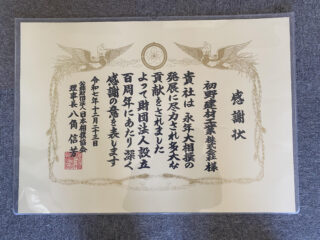 感謝状
初野建材工業株式会社様
貴社は永年大相撲の
発展に尽力され多大な
貢献をされました
よって財団法人設立
百周年にあたり深く
感謝の意を表します
令和七年十二月二十三日
公益財団法人日本相撲協会
理事長八角信芳